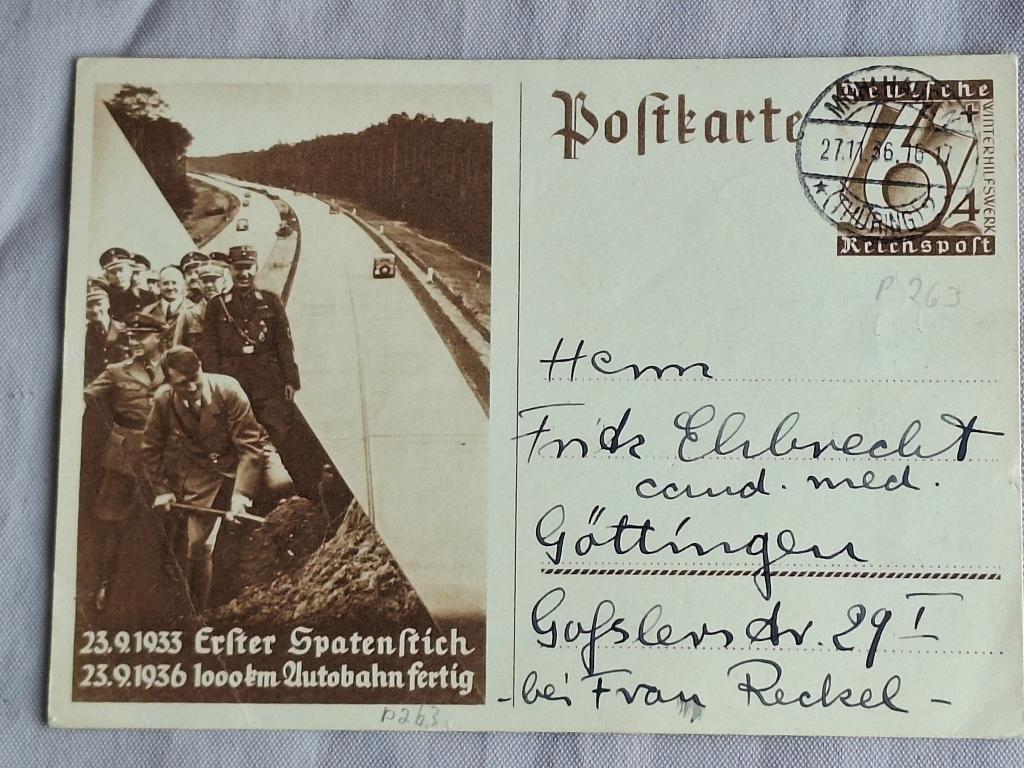 Postkarte
Deutsche
+
WINTERHILFSWERK
6
4
Reichspost
27.11.36.16-17
(THÜRING)
P 263
Herrn
Fritz Elsbrecht
cand. med.
Göttingen
Goßlerstr. 29 I
- bei Frau Reckel -
23.9.1933 Erster Spatenstich
23.9.1936 1000 km Autobahn fertig
P263